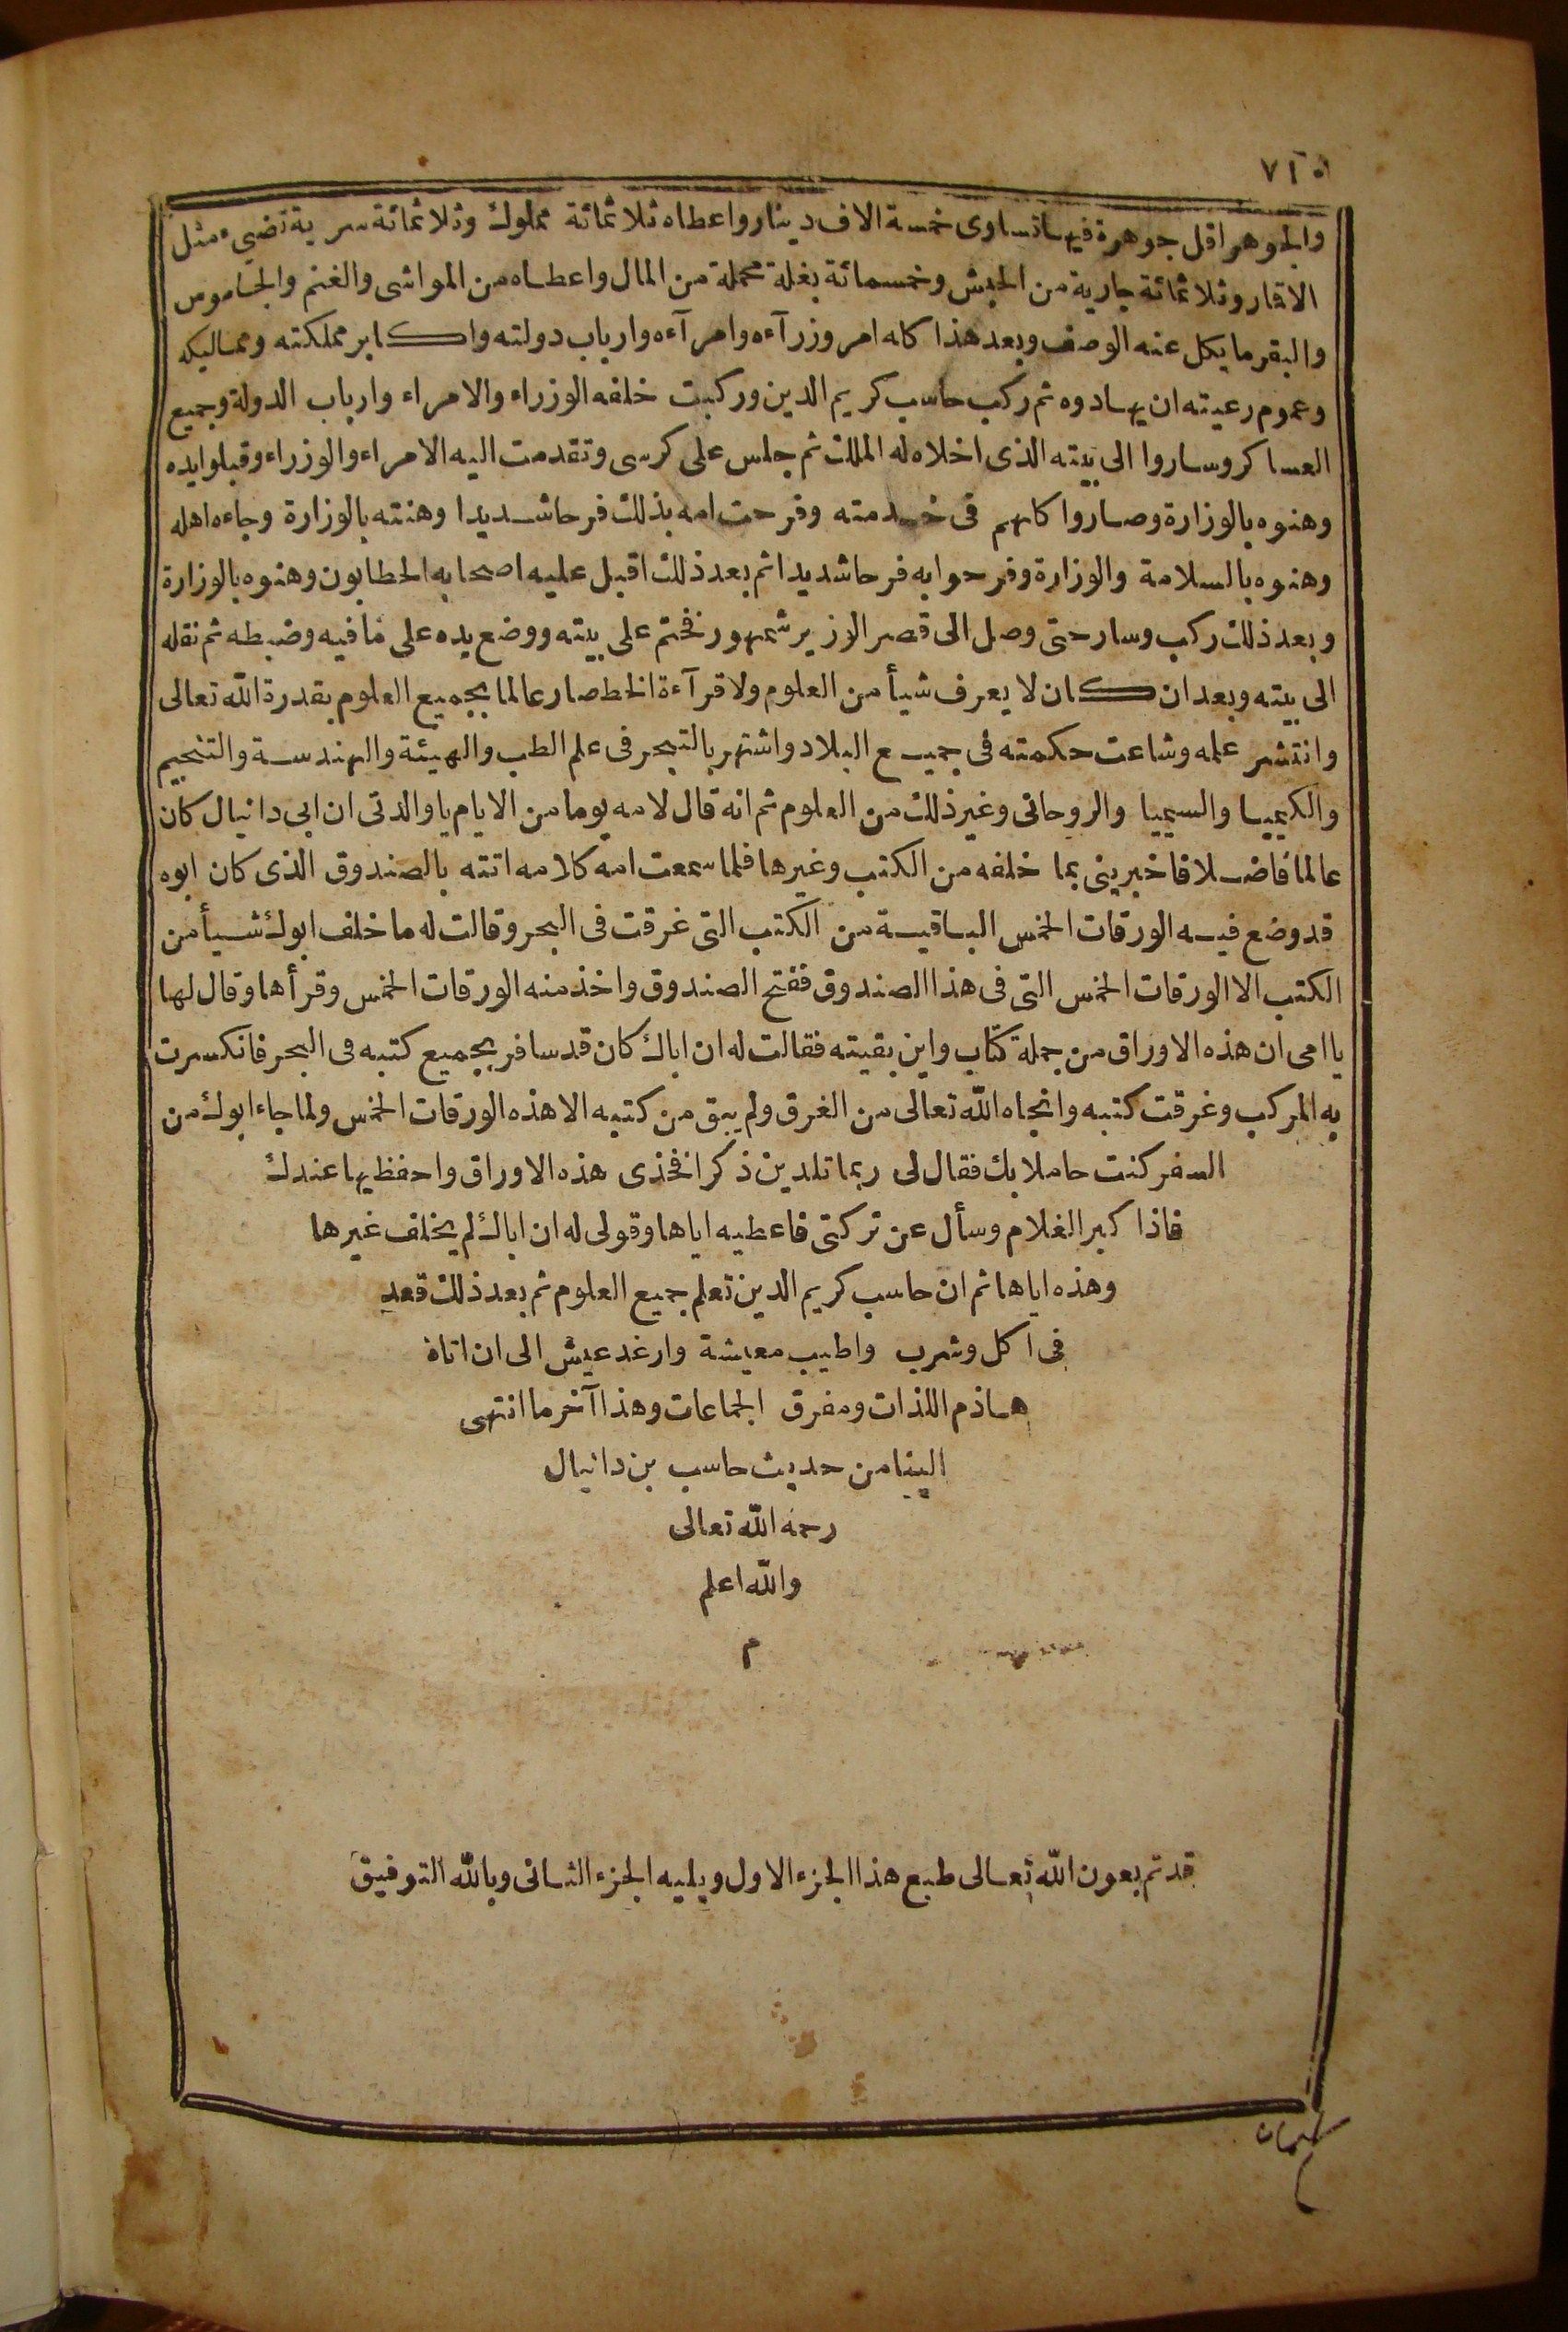 ٧١٠
والجوهر اقل جوهرة فيها تساوى خمسة الاف دينار واعطاه ثلاثمائة مملوك وثلاثمائة سرية تضىء مثل
الاقمار وثلاثمائة جارية من الحبش وخمسمائة بغلة محملة من المال واعطاه من المواشى والغنم والجاموس
والبقر ما يكل عنه الوصف وبعد هذا كله امر وزرآءه وامرآءه وارباب دولته واكابر مملكته ومماليكه
وعموم رعيته ان يهادوه ثم ركب حاسب كريم الدين وركبت خلفه الوزراء والامراء وارباب الدولة وجميع
العساكر وساروا الى بيته الذى اخلاه له الملك ثم جلس على كرسى وتقدمت اليه الامراء والوزراء وقبلوا يده
وهنوه بالوزارة وصاروا كلهم فى خدمته وفرحت امه بذلك فرحا شديدا وهنته بالوزارة وجاءه اهله
وهنوه بالسلامة والوزارة وفرحوا به فرحا شديدا ثم بعد ذلك اقبل عليه اصحابه الحطابون وهنوه بالوزارة
وبعد ذلك ركب وسار حتى وصل الى قصر الوزير شمهور فختم على بيته ووضع يده على ما فيه وضبطه ثم نقله
الى بيته وبعد ان كان لا يعرف شيأ من العلوم ولا قرآءة الخط صار عالما بجميع العلوم بقدرة الله تعالى
وانتشر علمه وشاعت حكمته فى جميع البلاد واشتهر بالتبحر فى علم الطب والهيئة والهندسة والتنجيم
والكيميا والسيميا والروحانى وغير ذلك من العلوم ثم انه قال لامه يوما من الايام يا والدتى ان ابى دانيال كان
عالما فاضلا فاخبرينى بما خلفه من الكتب وغيرها فلما سمعت امه كلامه اتته بالصندوق الذى كان ابوه
قد وضع فيه الورقات الخمس الباقية من الكتب التى غرقت فى البحر وقالت له ما خلف ابوك شيأ من
الكتب الا الورقات الخمس التى فى هذا الصندوق ففتح الصندوق واخذ منه الورقات الخمس وقرأها وقال لها
يا امى ان هذه الاوراق من جملة كتاب واين بقيته فقالت له ان اباك كان قد سافر بجميع كتبه فى البحر فانكسرت
به المركب وغرقت كتبه وانجاه الله تعالى من الغرق ولم يبق من كتبه الا هذه الورقات الخمس ولما جاء ابوك من
السفر كنت حاملا بك فقال لى ربما تلدين ذكرا فخذى هذه الاوراق واحفظيها عندك
فاذا كبر الغلام وسأل عن تركتى فاعطيه اياها وقولى له ان اباك لم يخلف غيرها
وهذه اياها ثم ان حاسب كريم الدين تعلم جميع العلوم ثم بعد ذلك قعد
فى اكل وشرب واطيب معيشة وارغد عيش الى ان اتاه
هاذم اللذات ومفرق الجماعات وهذا آخر ما انتهى
الينا من حديث حاسب بن دانيال
رحمه الله تعالى
والله اعلم
م
قد تم بعون الله تعالى طبع هذا الجزء الاول ويليه الجزء الثانى وبالله التوفيق